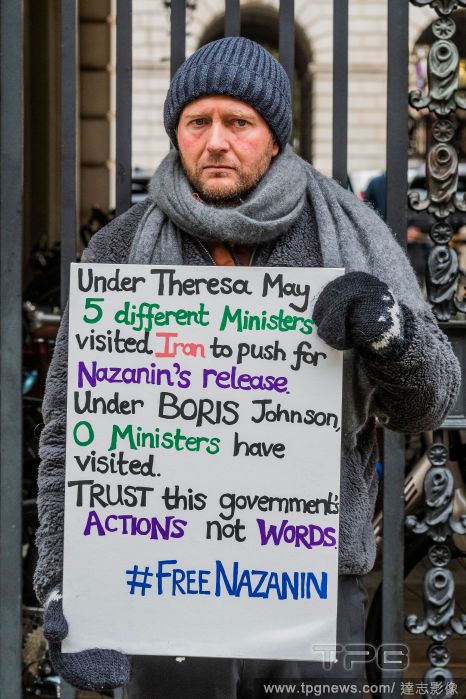 Under Theresa May
5 different Ministers
visited Iran to push for
Nazanin's release.
Under BORIS Johnson,
0 Ministers have
visited.
TRUST this government's
ACTIONS not WORDS.
#FREENAZANIN
TPG
www.tpgnews.com/達志影像